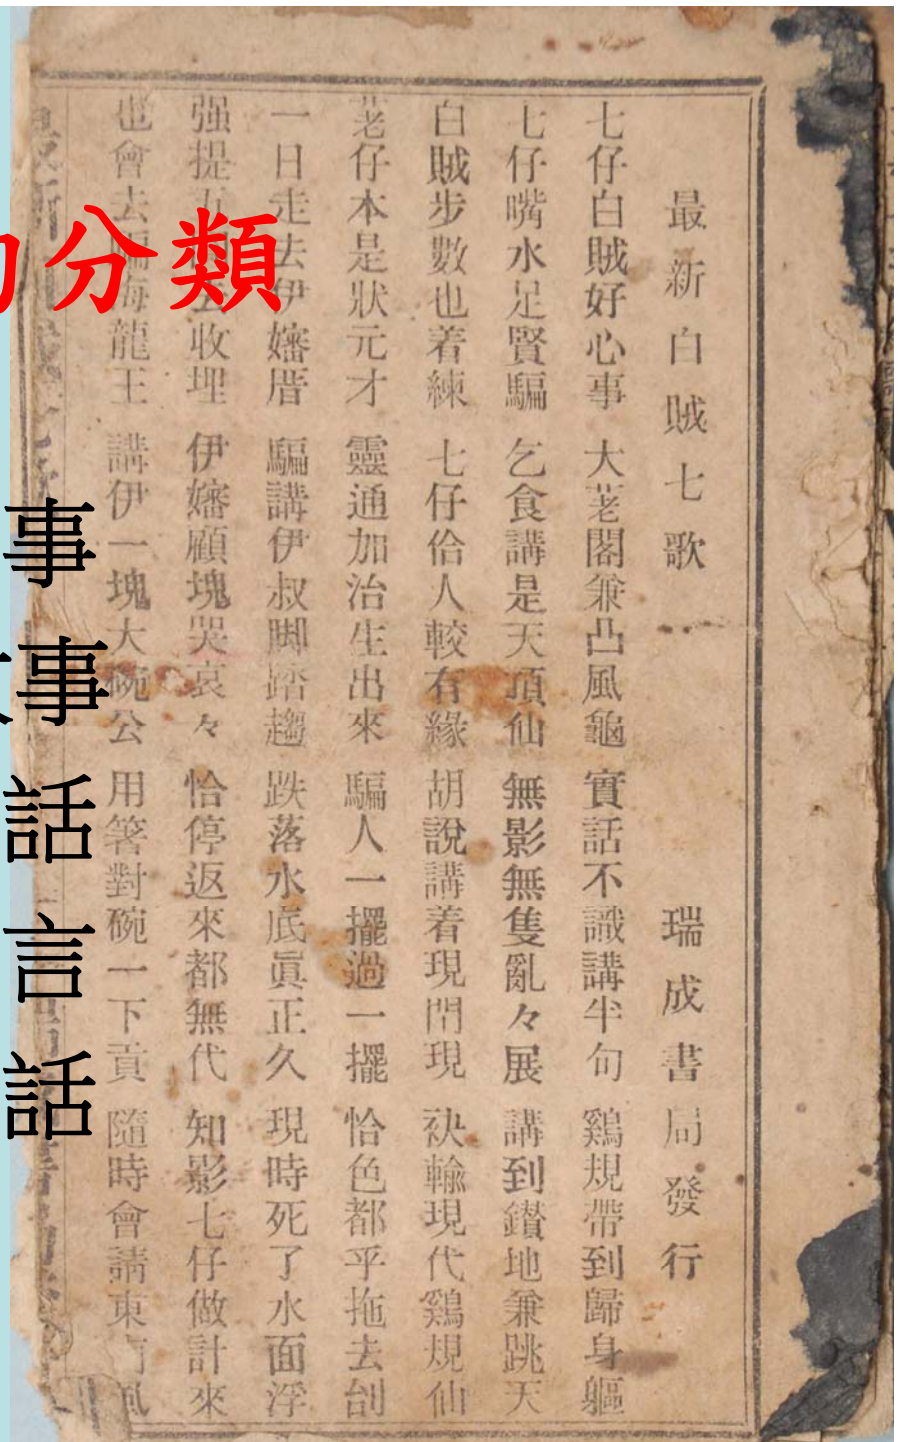 分類
事
事
話
言
話
最新白賊七歌 瑞成書局發行
七仔白賊好心事 大荖閣兼凸風龜 實話不識講半句 鷄規帶到歸身軀
七仔嘴水足賢騙 乞食講是天頂仙 無影無隻亂々展 講到鑚地兼跳天
白賊步數也着練 七仔佮人較有緣 胡說講着現 現 袂輸現代鷄規仙
荖仔本是狀元才 靈通加治生出來 騙人一擺過一擺 恰色都乎拖去刣
一日走去伊嬸厝 騙講伊叔脚踏趨 跌落水底眞正久 現時死了水面浮
强提 去收埋 伊嬸顧塊哭哀々 恰停返來都無代 知影七仔做計來
也會去騙海龍王 講伊一塊大碗公 用箸對碗一下貢 隨時會請東 風